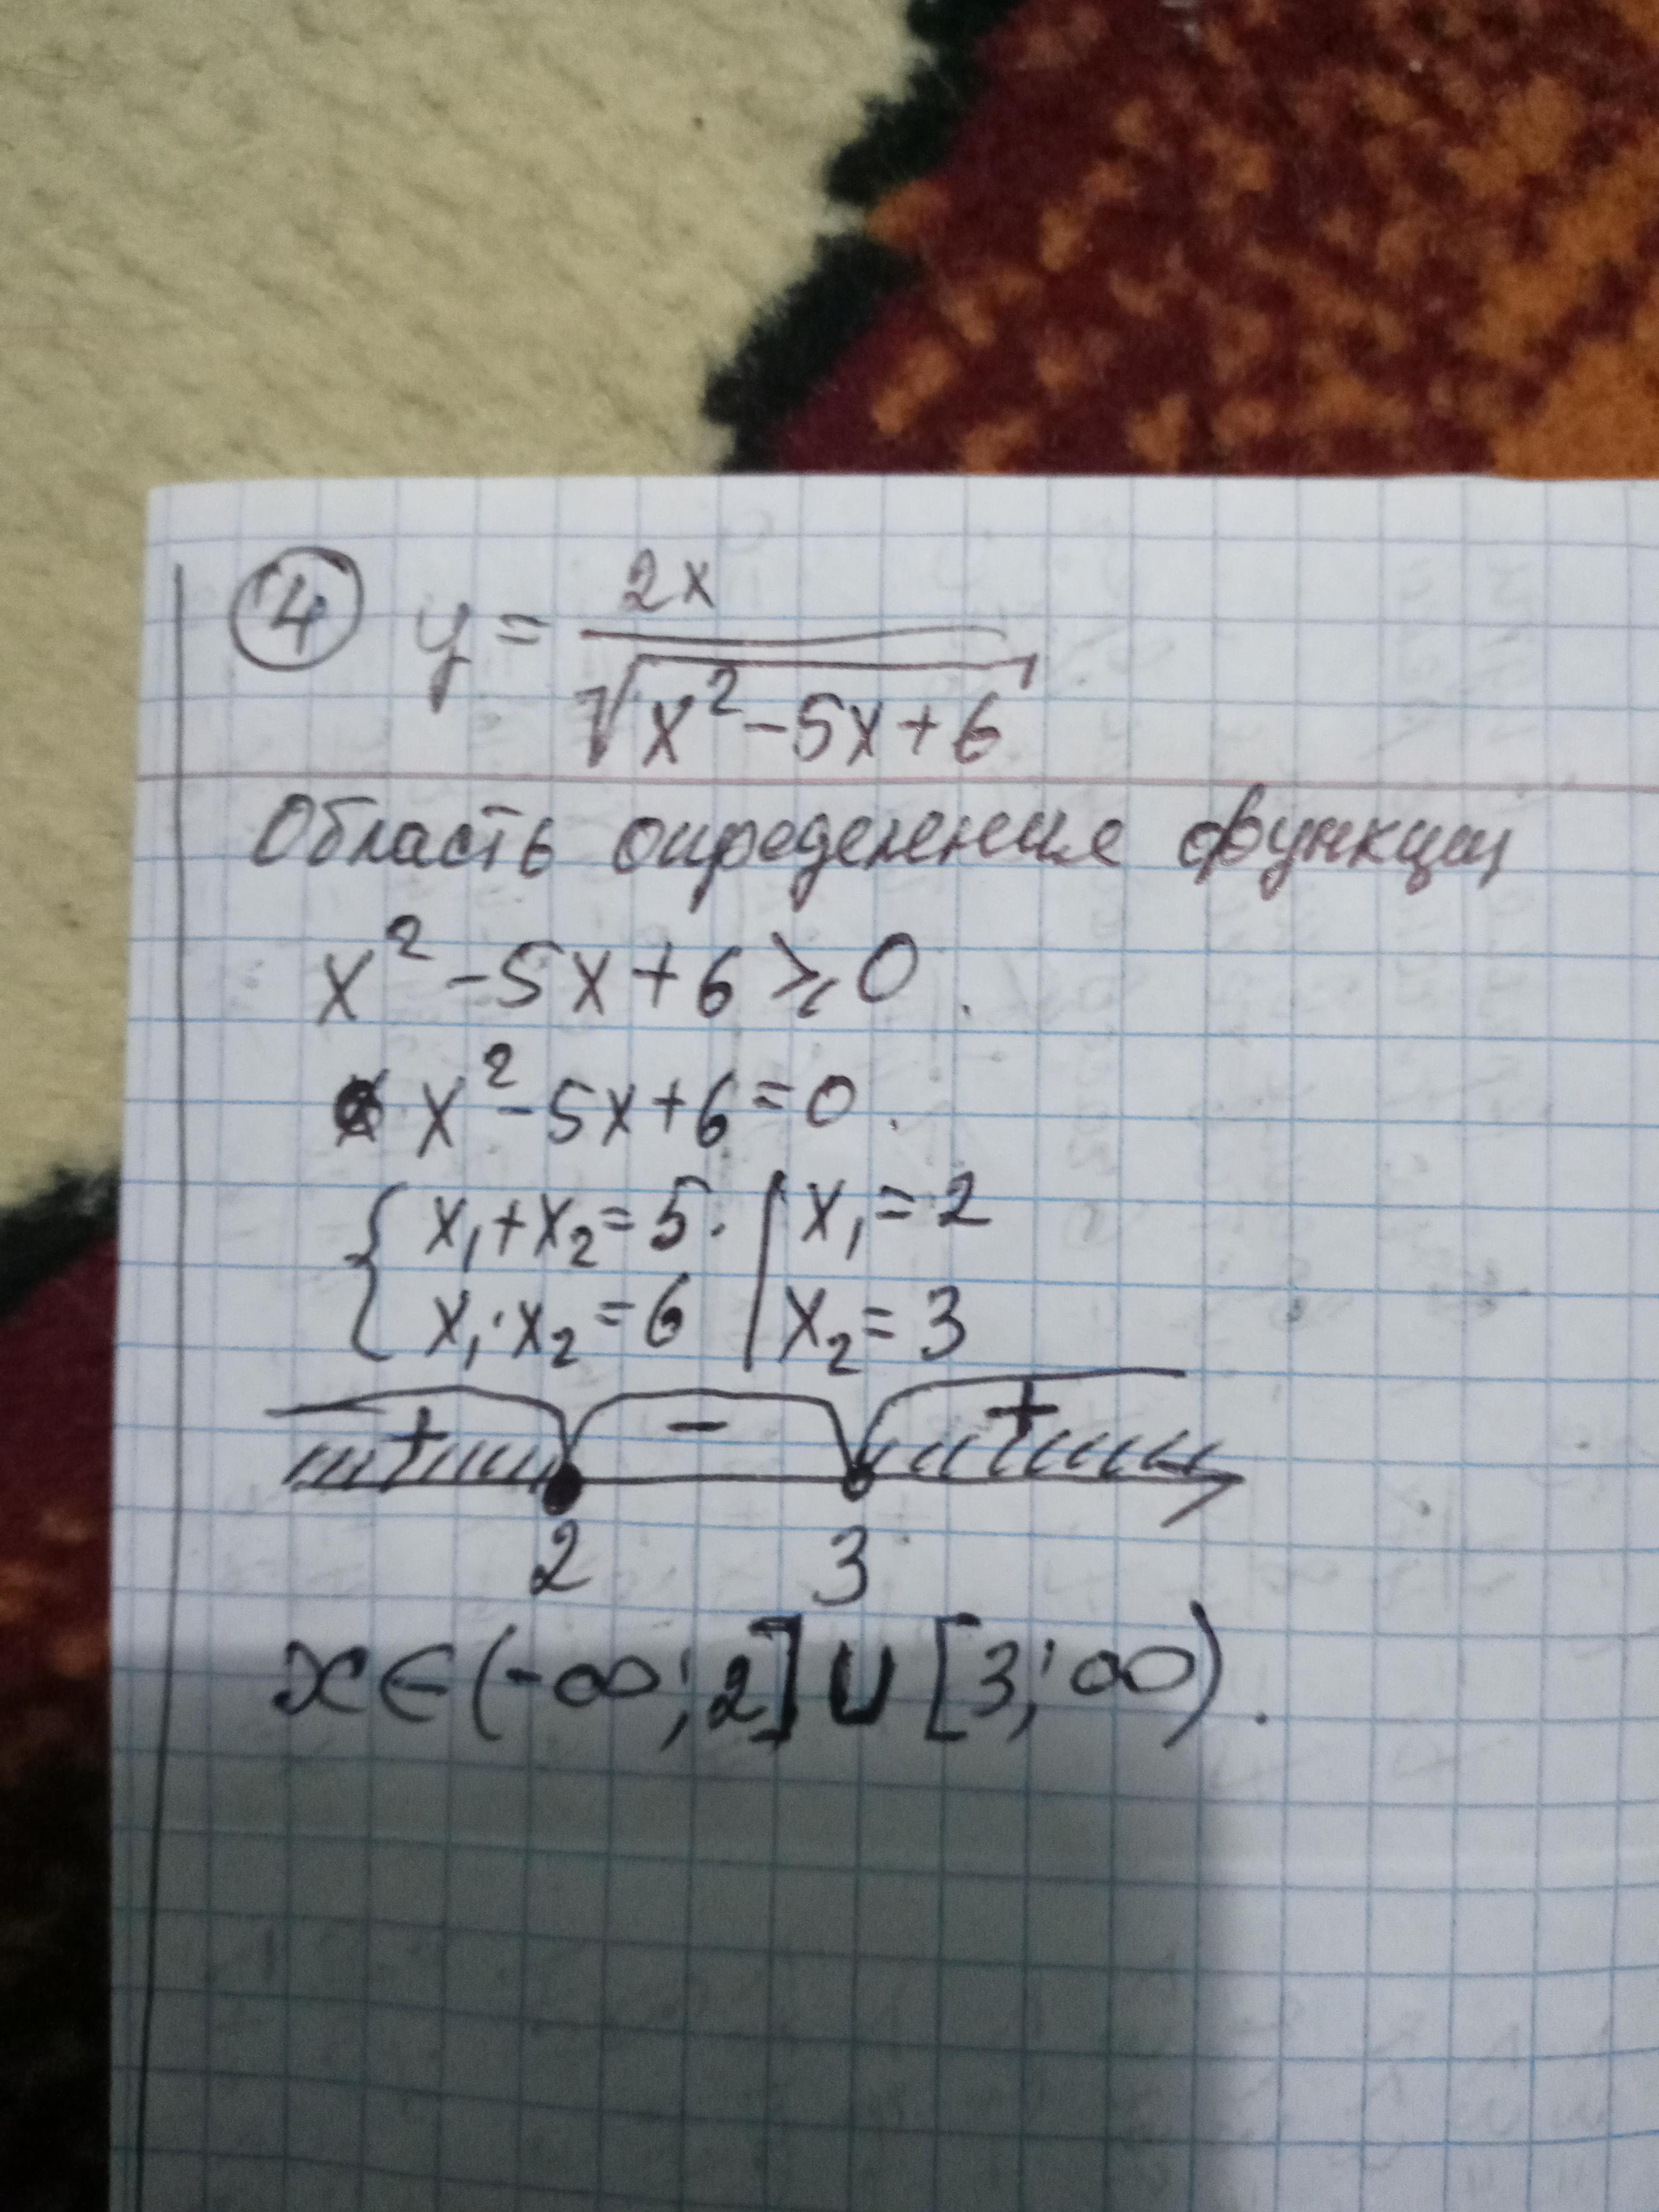 ④ y = 2x / √(x² - 5x + 6)
Область определение функции
x² - 5x + 6 ⩾ 0.
x² - 5x + 6 = 0.
{ x₁ + x₂ = 5. | x₁ = 2
x₁ · x₂ = 6 | x₂ = 3
+ - +
2 3
x ∈ (-∞; 2] ∪ [3; ∞).